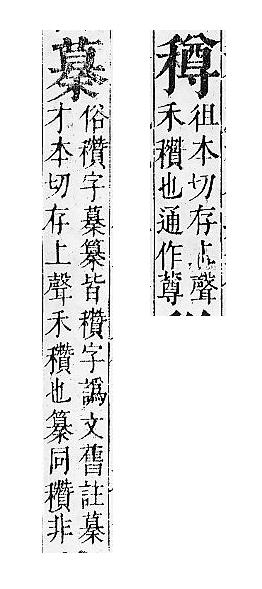 徂本切存上聲
禾穳也通作
俗穳字皆穳字譌文舊註
才本切存上聲禾穳也同穳非